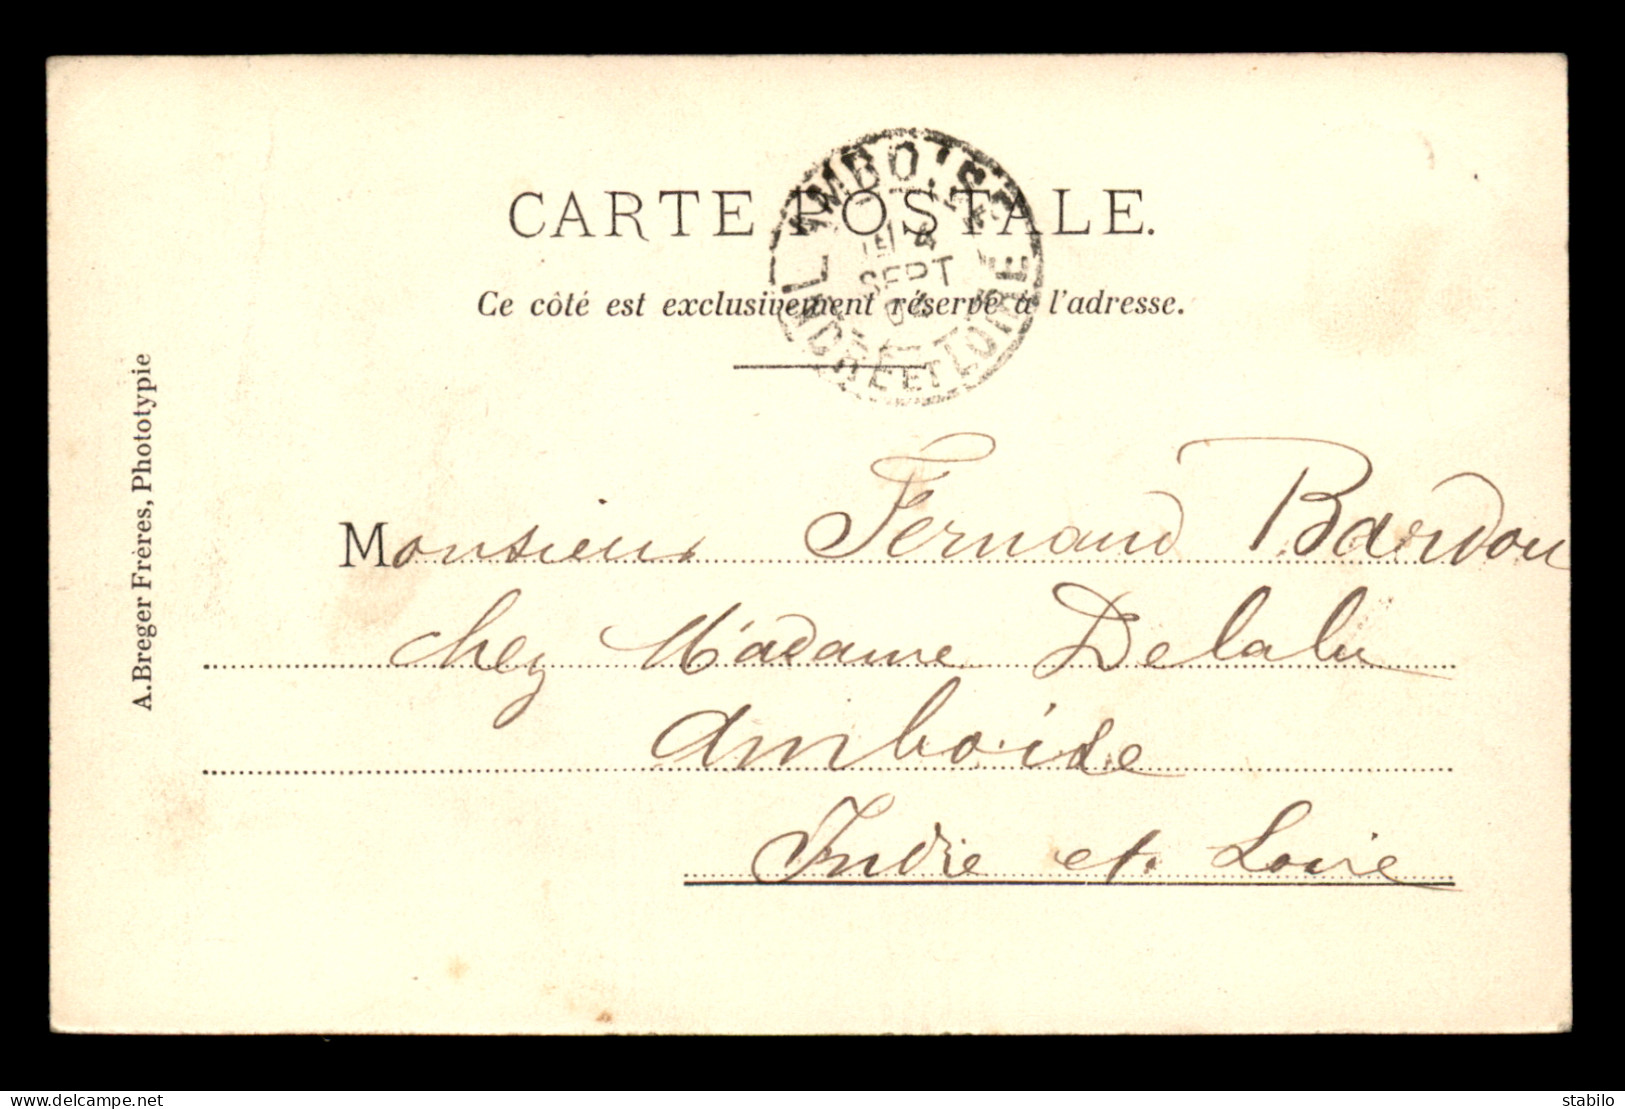 CARTE POSTALE.
AMBOISE
SEPT
04
INDRE ET LOIRE
Ce côté est exclusivement réservé à l'adresse.
A. Breger Frères, Phototypie
Monsieur Fernand Bardou
chez Madame Delalu
Amboise
Indre et Loire
www.delcampe.net
stabilo